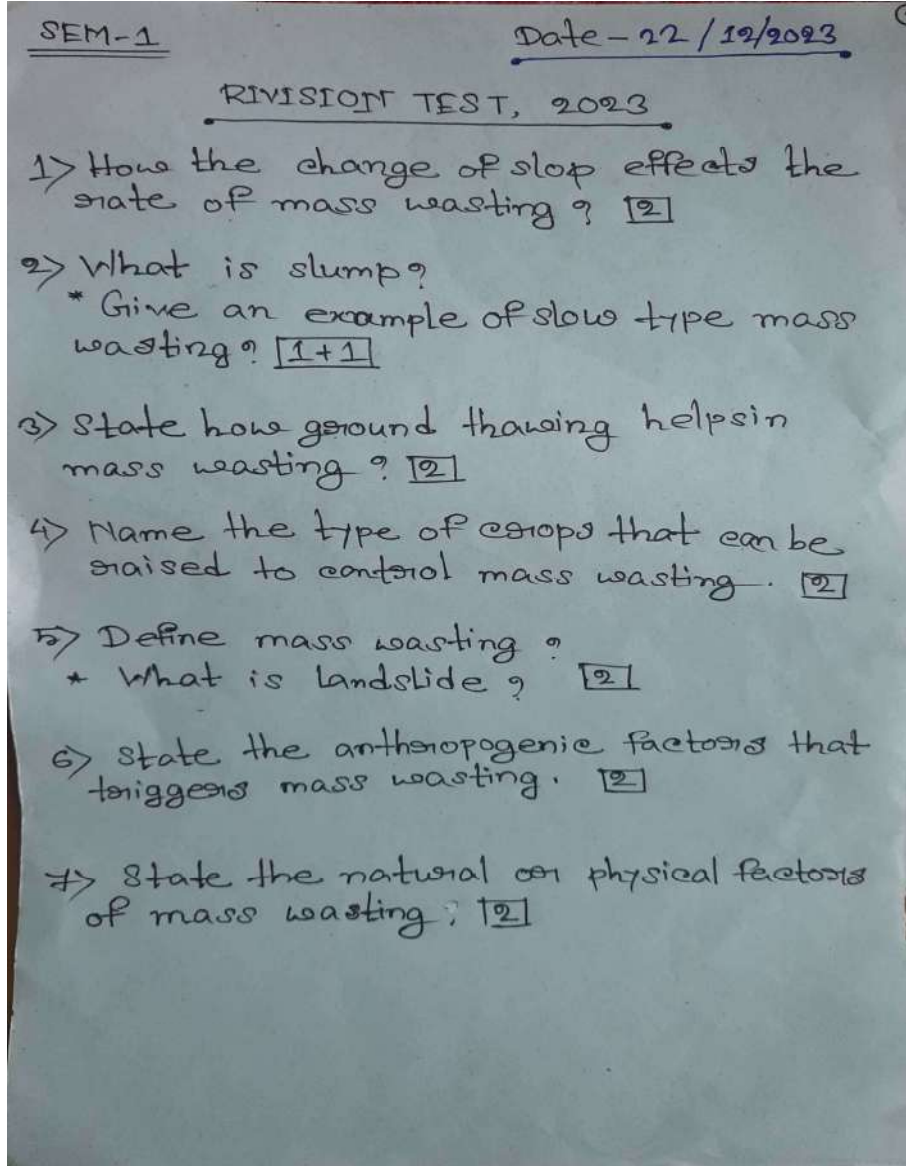 SEM-1
Date - 22/12/2023
RIVISION TEST, 2023
1> How the change of slop effects the
rate of mass wasting? [2]
2> What is slump?
* Give an example of slow type mass
wasting? [1+1]
3> State how ground thawing helpsin
mass weasting? [2]
4> Name the type of crops that can be
raised to control mass wasting. [2]
5> Define mass wasting?
* What is landslide? [2]
6> State the anthropogenic factors that
triggers mass wasting. [2]
7> State the natural or physical factors
of mass wasting. [2]